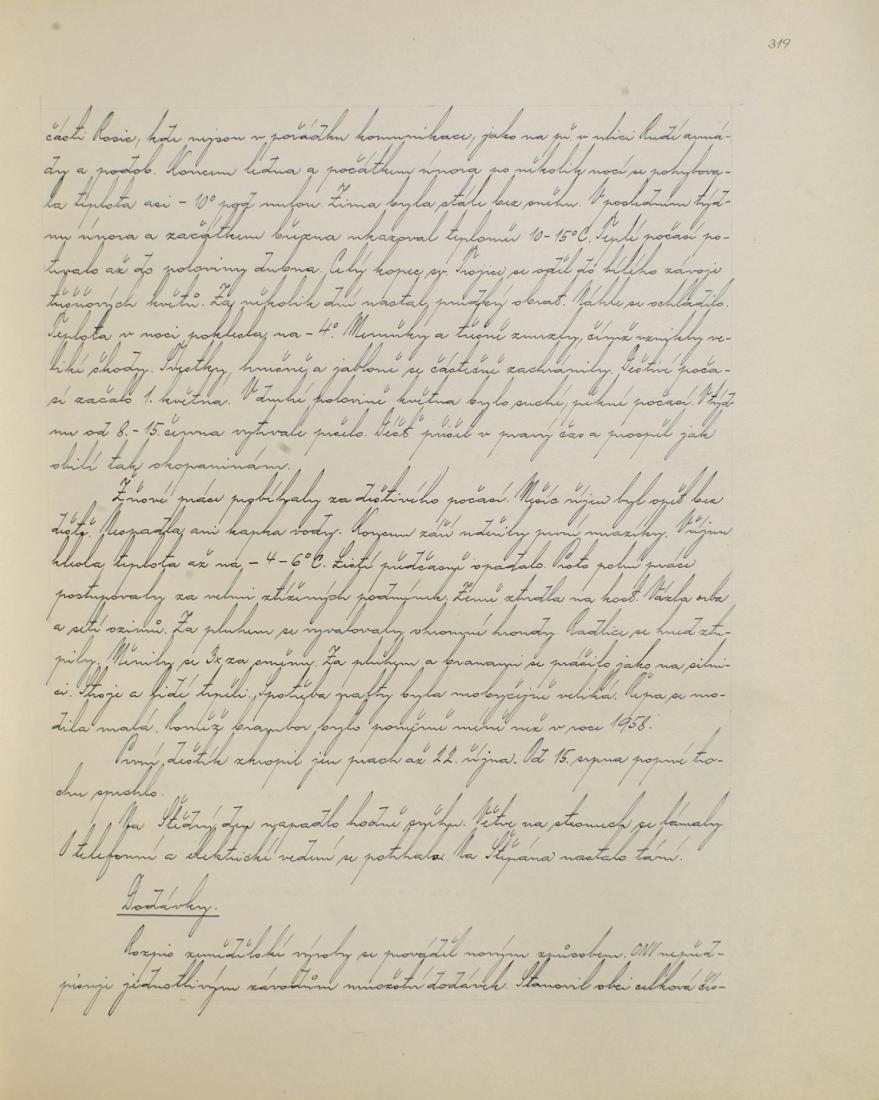 319
části Rosic, kde nejsou v pořádku komunikace, jako na př. v ulici Rudé armá-
dy a podob. Koncem ledna a počátkem února po několik nocí se pohybova-
la teplota asi - 10° pod nulou. Zima byla stále bez sněhu. V posledním týd-
nu února a začátkem března ukazoval teploměr 10-15°C. Teplé počasí po-
trvalo až do poloviny dubna. Celý kopec sv. Trojice se oděl do bílého závoje
třešňových květů. Za několik dní nastal prudký obrat. Náhle se ochladilo.
Teplota v noci poklesla na - 4°. Meruňky a třešně zmrzly, čímž vznikly ve-
liké škody. Švestky, hrušně a jabloně se částečně zachránily. Deštivé poča-
sí začalo 1. května. V druhé polovině května bylo suché, pěkné počasí. V týd-
nu od 8. - 15. června vytrvale pršelo. Déšť přišel v pravý čas a prospěl jak
obilí tak okopaninám.
Žňové práce probíhaly za deštivého počasí. Měsíc říjen byl opět bez
deště. Nespadla ani kapka vody. Koncem září udeřily první mrazíky. V říjnu
klesla teplota až na - 4 - 6°C. Listí předčasně opadalo. Proto polní práce
postupovaly za velmi ztížených podmínek. Země ztvrdla na kost. Vázla orba
a setí ozimů. Za pluhem se vyvalovaly ohromné hroudy. Radlice se hned ztu-
pily. Měnily se 3x za směnu. Za pluhem a branami se prášilo jako na silni-
ci. Stroje a lidé trpěli. Spotřeba nafty byla neobyčejně veliká. Řepa se uro-
dila malá. Rovněž brambor bylo poměrně méně než v roce 1958.
První deštík zkropil jen prach až 22. října. Od 15. srpna poprvé tro-
chu sprchlo.
Na Štědrý den napadlo hodně sněhu. Větve na stromech se lámaly.
I telefonní a elektrické vedení se potrhalo. Na Štěpána nastalo tání.
Dodávky.
Rozpis zemědělské výroby se prováděl novým způsobem. ONV nepřed-
pisuje jednotlivým závodům množství dodávek. Stanovil obci celková čís-